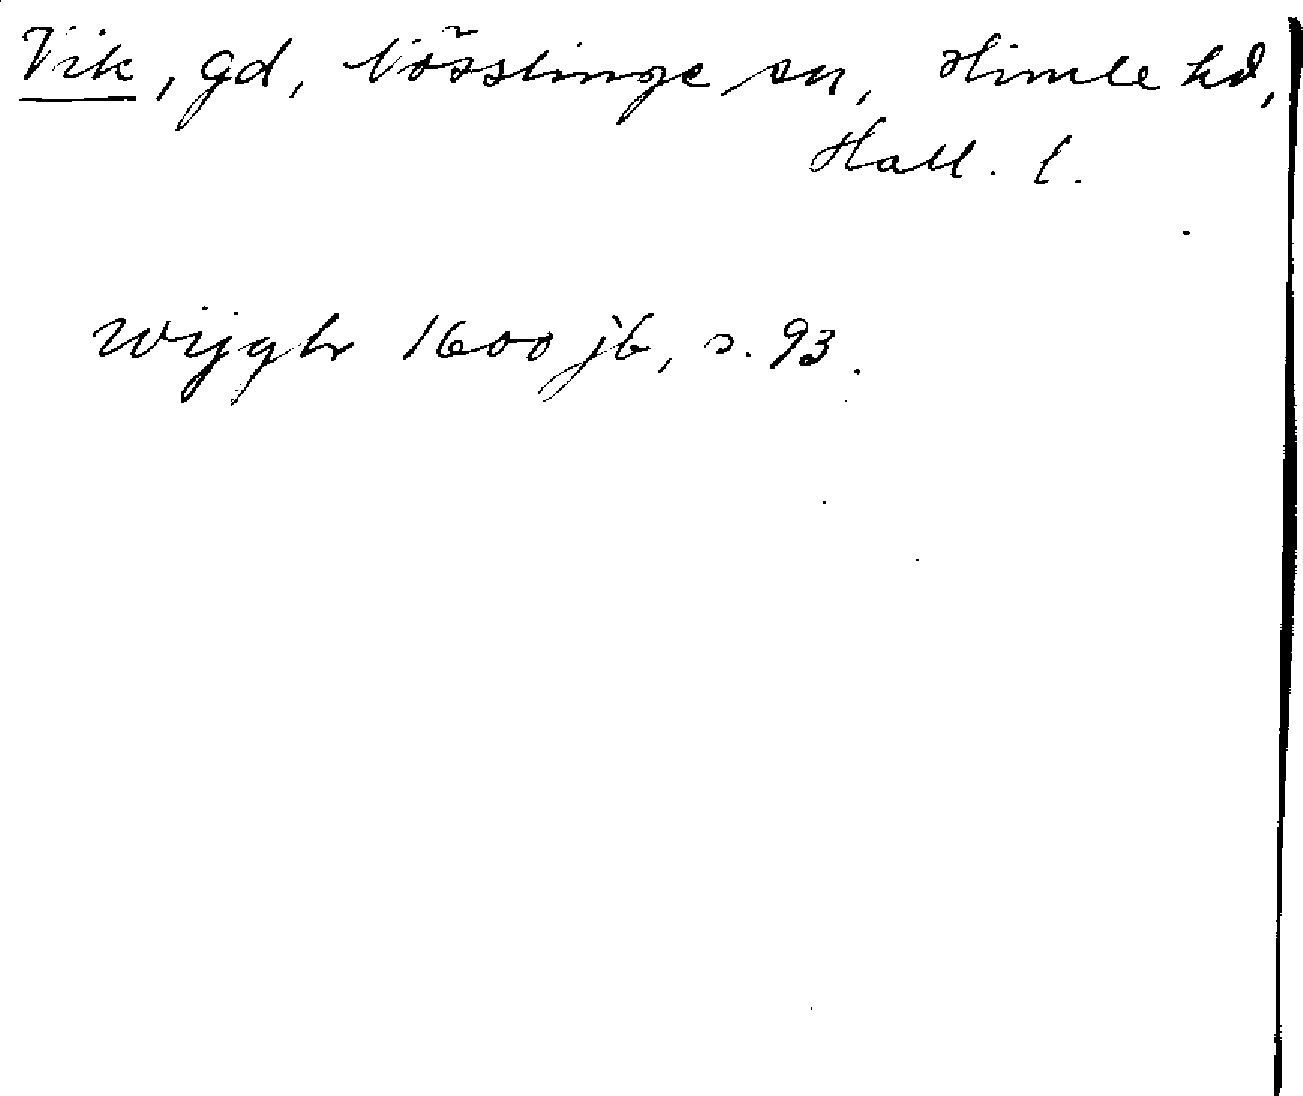 Vik, gd, Nösslinge sn, Himle hd,
Hall. l.
Wijgh 1600 jb, s. 93.